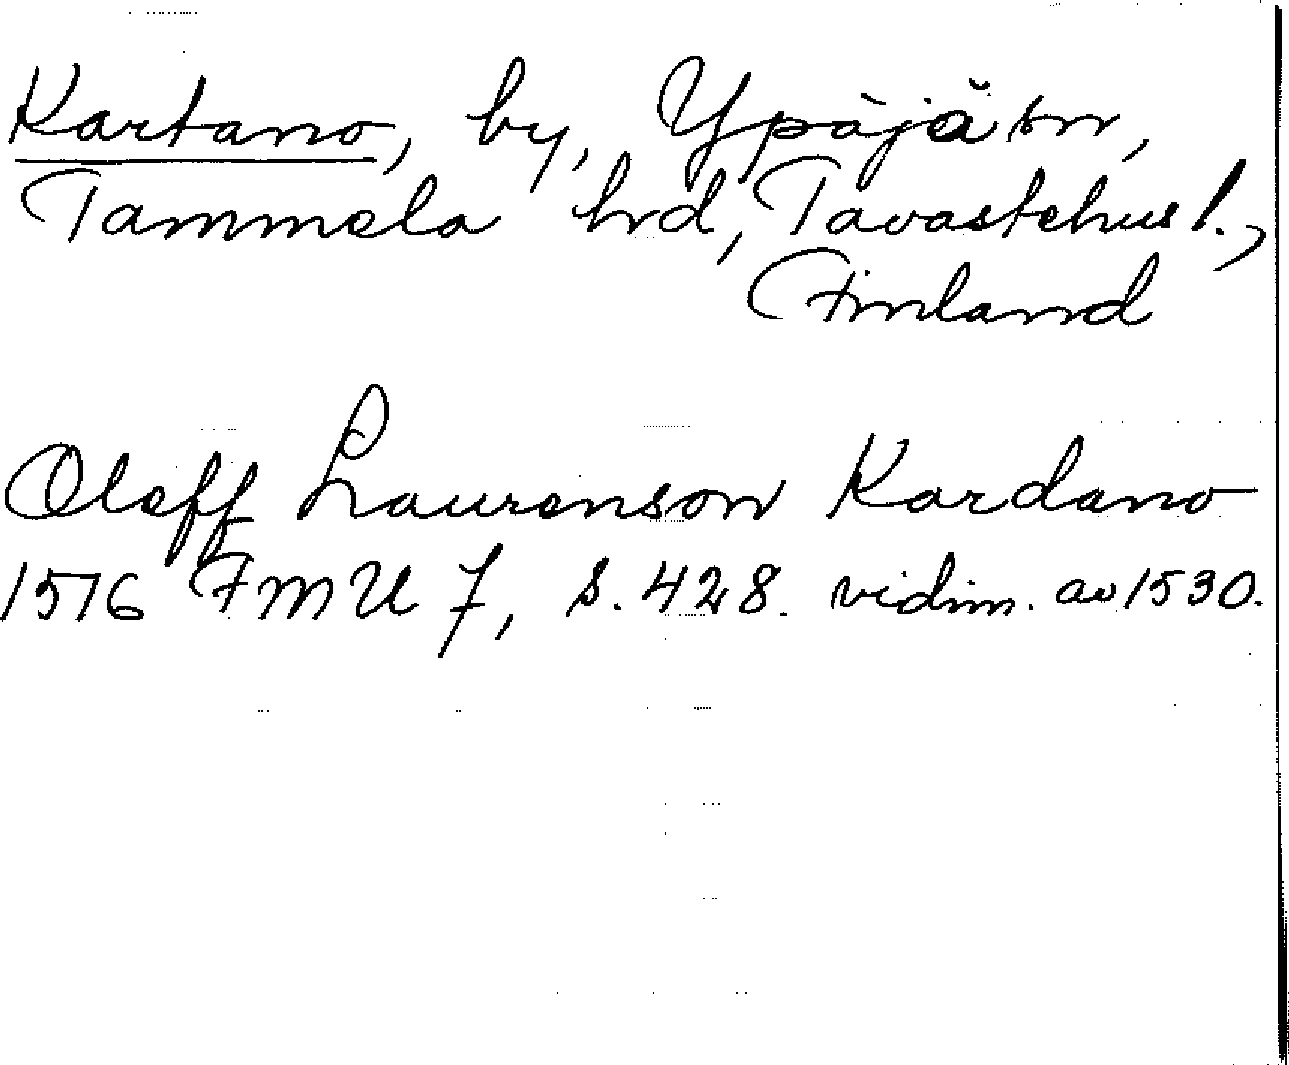 Kartano, by, Ypäjä sn,
Tammela hrd, Tavastehus l.,
Finland
Oleff Laurenson Kardano
1516 FMU 7, s. 428. vidim. av 1530.